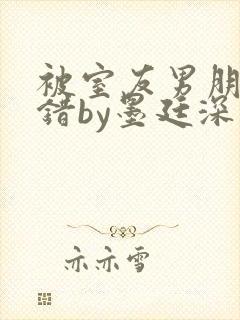 被室友男朋
错by墨廷深
亦亦雪